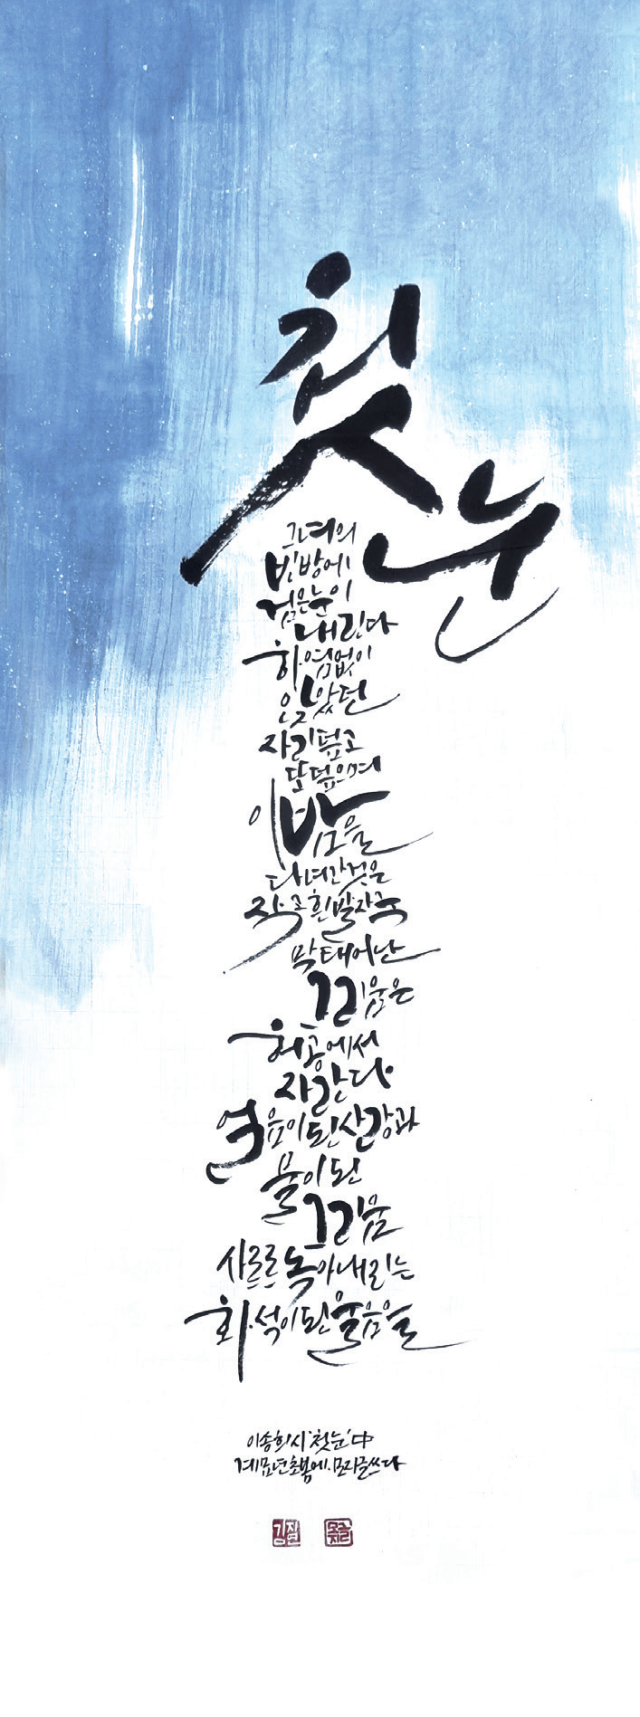 첫눈
그녀의
빈방에
검은눈이
내린다
하염없이
앉았던
자리덮고
또덮으며
이밤을
다녀간것은
작은흰발자국
막태어난
그리움은
허공에서
자란다
얼음이된산강과
불이된
그리움
사르르녹아내리는
화석이된울음을
이송희시'첫눈'中
계묘년초봄에.모지글쓰다